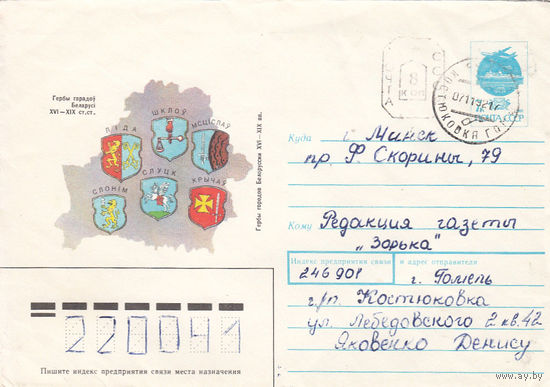 Гербы гарадоў
Беларусі
XVI—XIX ст.ст.
ШКЛОЎ
ЛІДА
МСЦІСЛАЎ
СЛОНІМ
СЛУЦК
КРЫЧАЎ
Гербы городов Белоруссии XVI—XIX вв.
8
КОП
ПОЧТА СССР
КОСТЮКОВКА ГОМ
Куда г. Минск
пр. Ф. Скорины, 79
Кому Редакция газеты
„Зорька"
Индекс предприятия связи и адрес отправителя
246901 г. Гомель
г/п. Костюковка
ул. Лебедовского 2 кв. 42
Яковенко Денису
220041
Пишите индекс предприятия связи места назначения
www.ay.by